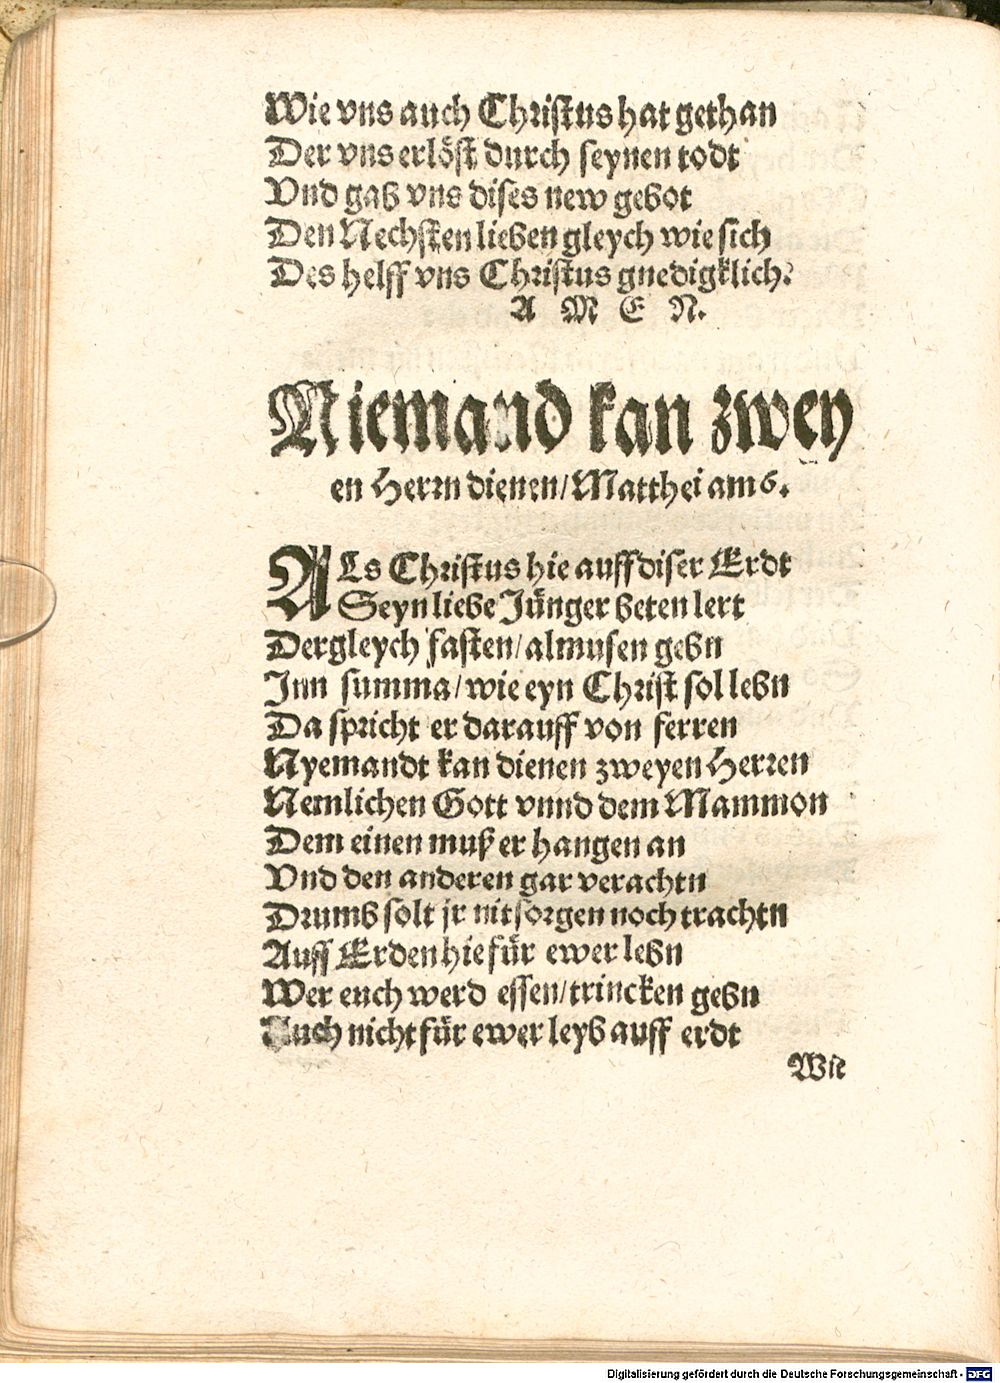 Wie vns auch Christus hat gethan
Der vns erlöst durch seynen todt
Vnd gab vns dises new gebot
Den Nechsten lieben gleych wie sich
Des helff vns Christus gnedigklich.
A M E N.
Niemand kan zwey
en Herrn dienen/Matthei am 6.
ALs Christus hie auff diser Erdt
Seyn liebe Jünger beten lert
Dergleych fasten/almusen gebn
Inn summa/wie eyn Christ sol lebn
Da spricht er darauff von ferren
Nyemandt kan dienen zweyen Herren
Nemlichen Gott vnnd dem Mammon
Dem einen muß er hangen an
Vnd den anderen gar verachtn
Drumb solt jr nit sorgen noch trachtn
Auff Erden hie für ewer lebn
Wer euch werd essen/trincken gebn
Auch nicht für ewer leyb auff erdt
Wie
Digitalisierung gefördert durch die Deutsche Forschungsgemeinschaft - DFG